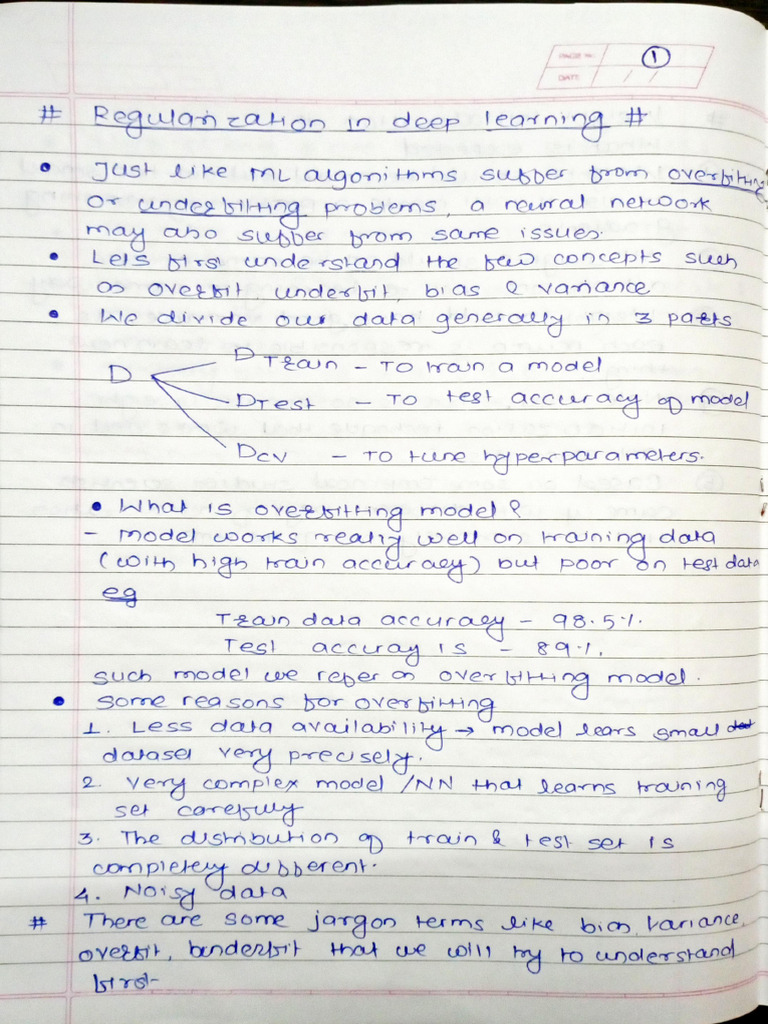 PAGE No. 1
DATE / /
# Regularization in deep learning #
• Just like ML algorithms suffer from overfitting
or underfitting problems, a neural network
may also suffer from same issues.
• Lets first understand the few concepts such
as overfit underfit, bias & variance
• We divide our data generally in 3 parts
D
DTrain - To train a model
DTest - To test accuracy of model
Dcv - To tune hyperparameters.
• What is overfitting model?
- Model works really well on training data
(with high train accuracy) but poor on test data
eg
Train data accuracy - 98.5%.
Test accuray is - 89%.
such model we refer as overfitting model.
• Some reasons for overfitting
1. Less data availability → model lears small
dataset very precisely.
2. Very complex model /NN that learns training
set carefully
3. The distribution of train & test set is
completely different.
4. Noisy data
# There are some jargon terms like bias, variance,
overfit, underfit that we will try to understand
first-